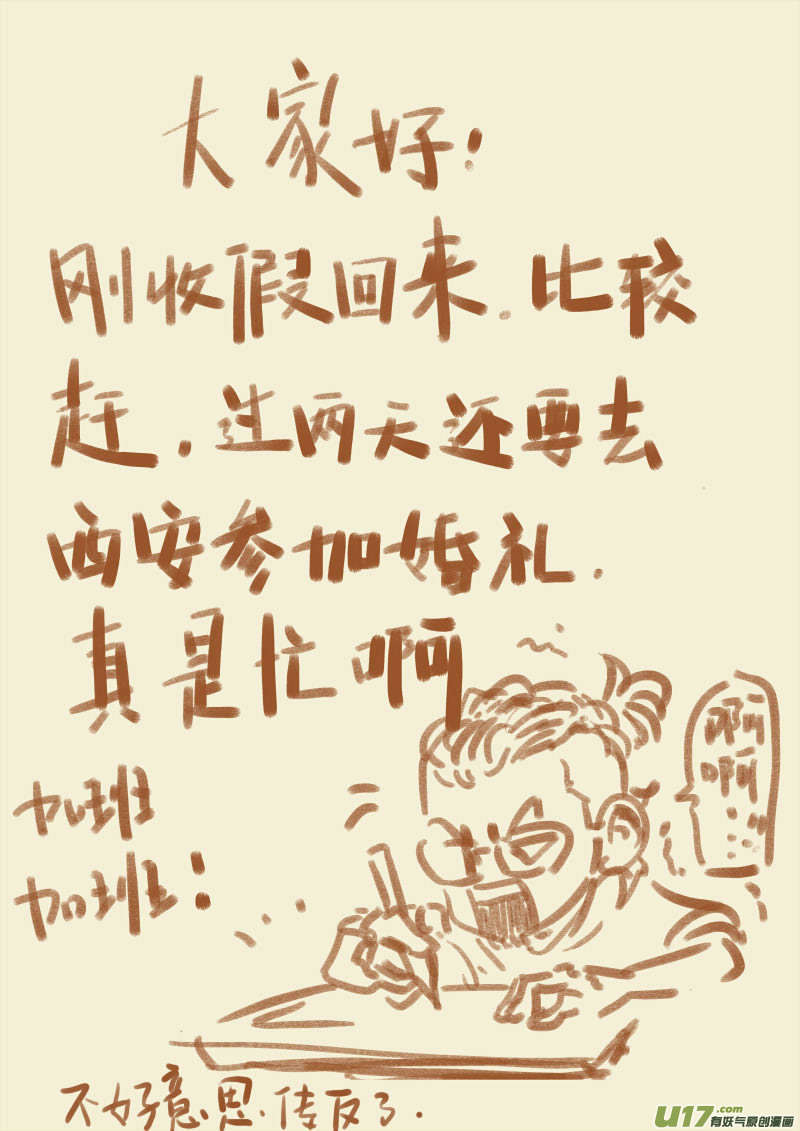 大家好:
刚收假回来.比较
赶,过两天还要去
西安参加婚礼.
真是忙啊
加班
加班:
啊
啊
不好意思.传反了.
U17.com
有妖气原创漫画